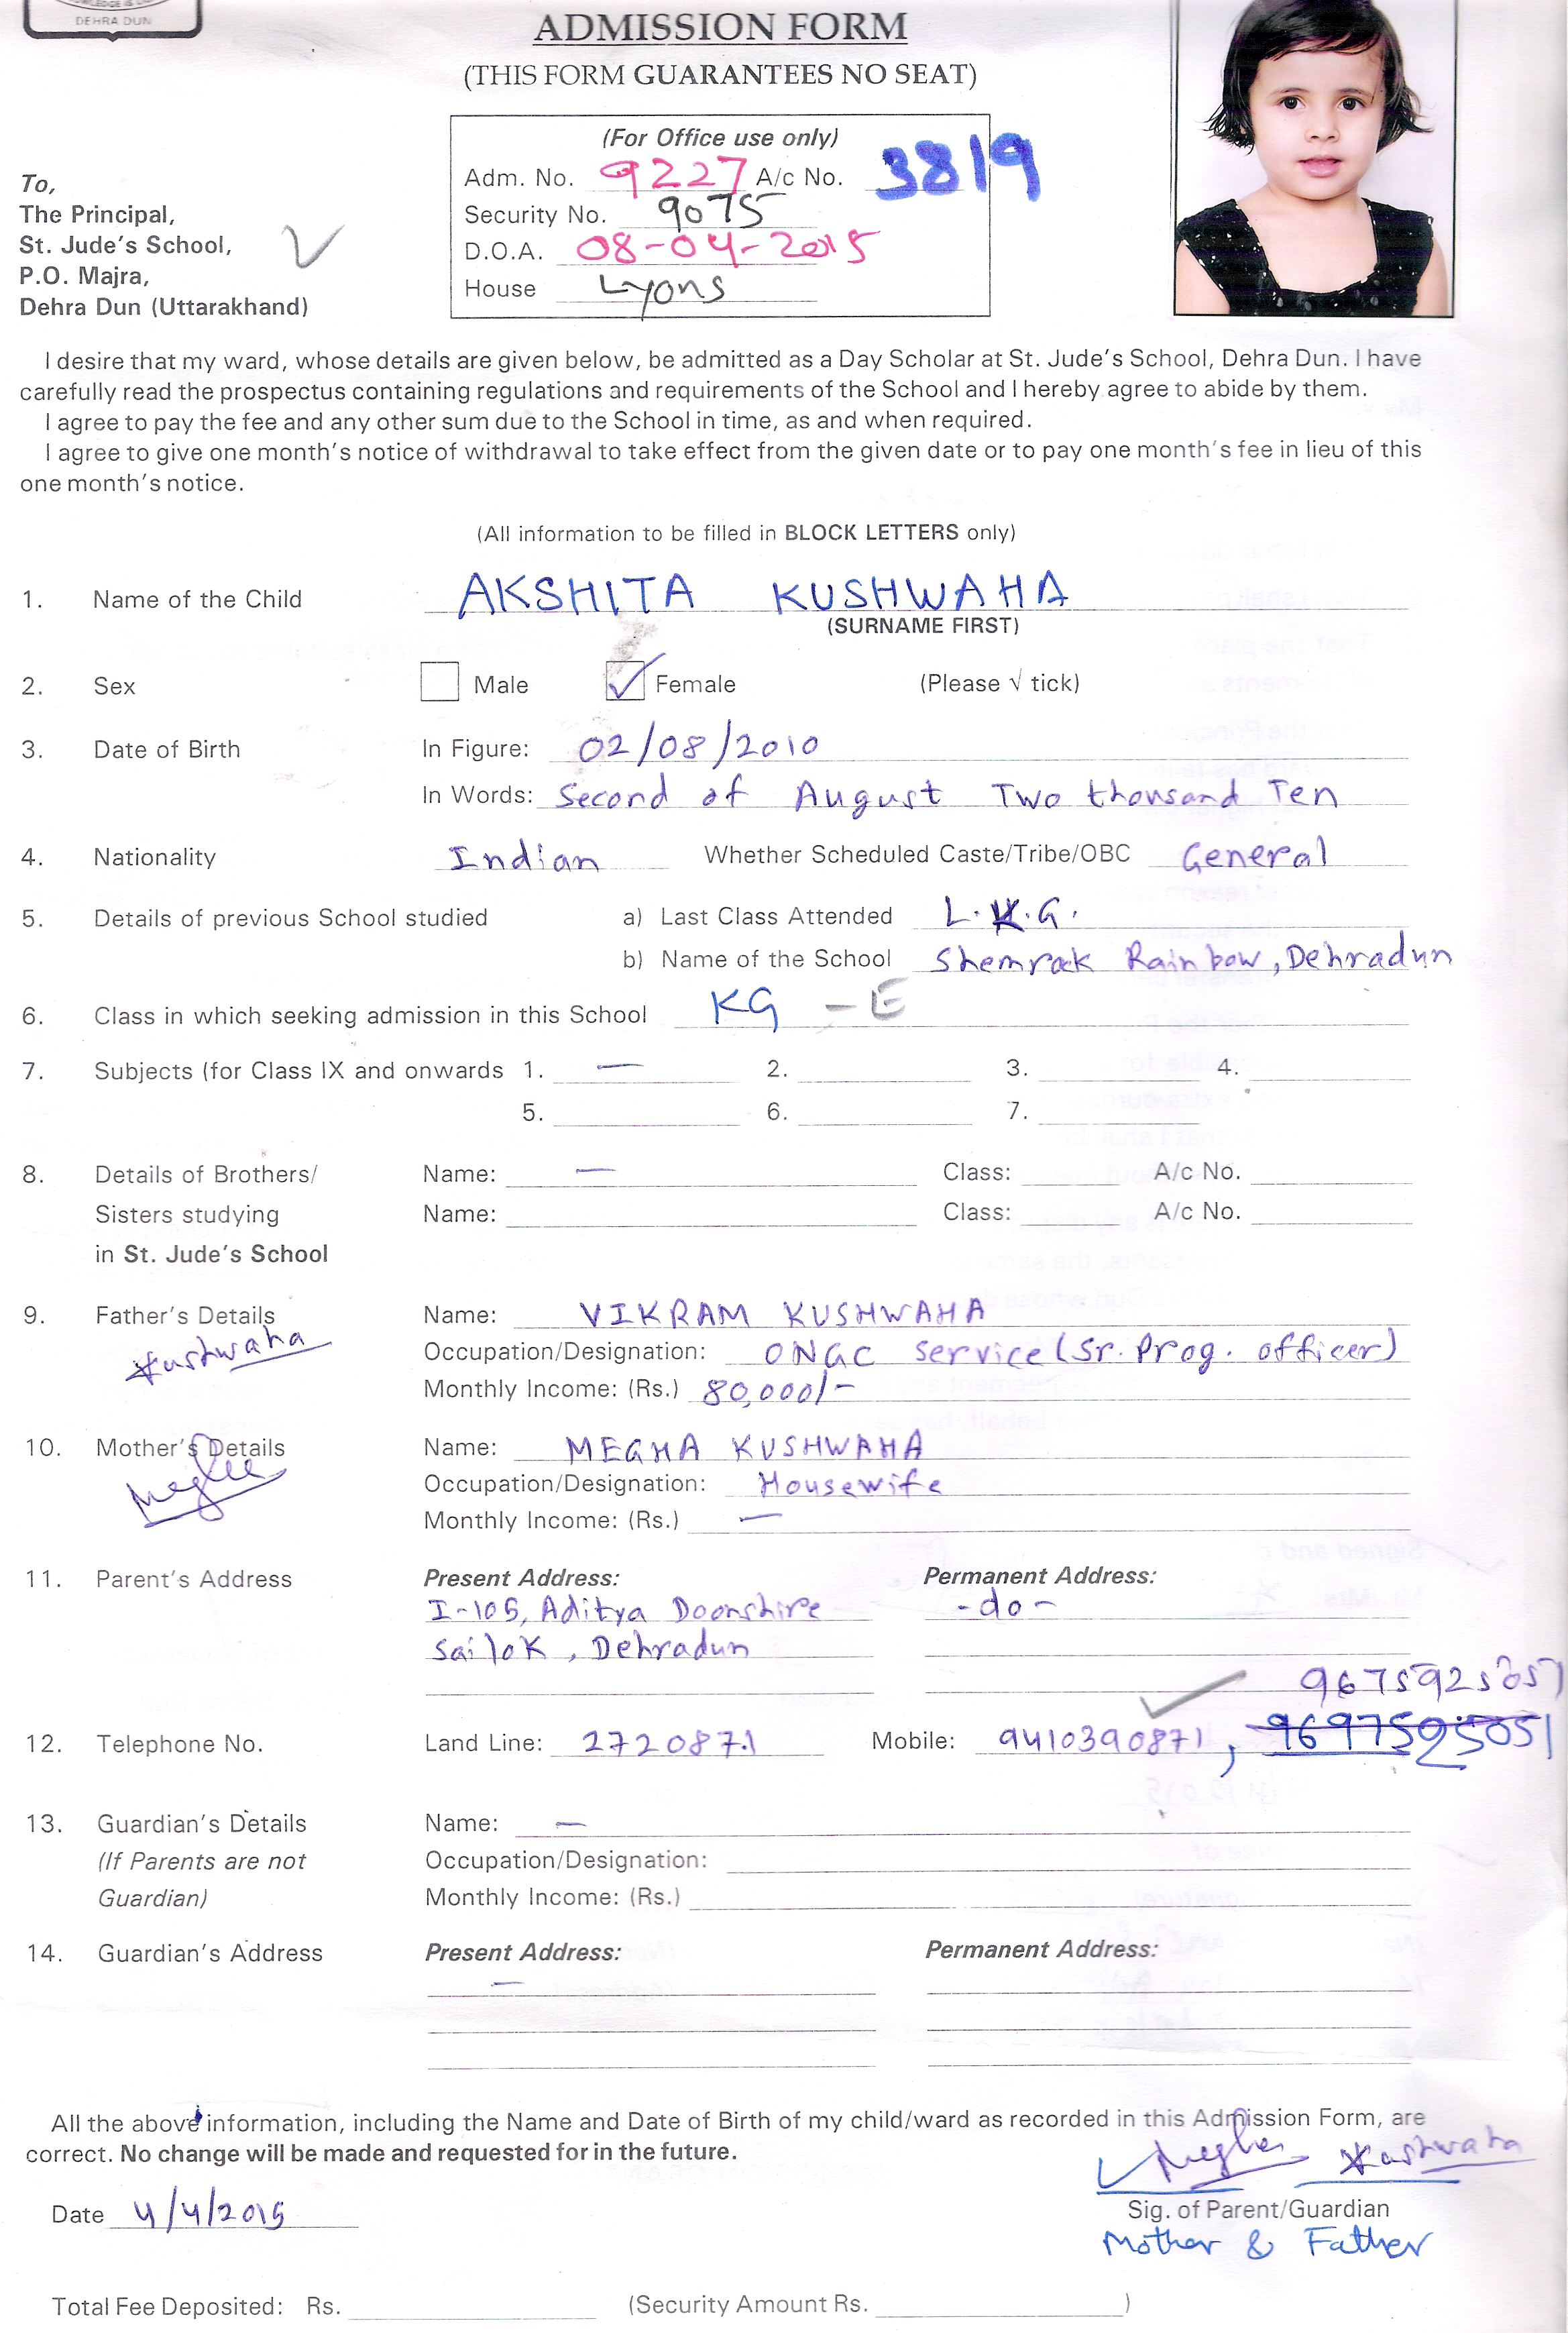 DEHRA DUN
ADMISSION FORM
(THIS FORM GUARANTEES NO SEAT)
(For Office use only)
Adm. No. 9227 A/c No. 3819
Security No. 9075
D.O.A. 08-04-2015
House Lyons
To,
The Principal,
St. Jude's School,
P.O. Majra,
Dehra Dun (Uttarakhand)
I desire that my ward, whose details are given below, be admitted as a Day Scholar at St. Jude's School, Dehra Dun. I have
carefully read the prospectus containing regulations and requirements of the School and I hereby agree to abide by them.
I agree to pay the fee and any other sum due to the School in time, as and when required.
I agree to give one month's notice of withdrawal to take effect from the given date or to pay one month's fee in lieu of this
one month's notice.
(All information to be filled in BLOCK LETTERS only)
1. Name of the Child AKSHITA KUSHWAHA
(SURNAME FIRST)
2. Sex Male Female (Please √ tick)
3. Date of Birth In Figure: 02/08/2010
In Words: Second of August Two thousand Ten
4. Nationality Indian Whether Scheduled Caste/Tribe/OBC General
5. Details of previous School studied a) Last Class Attended L.K.G.
b) Name of the School Shemrock Rainbow, Dehradun
6. Class in which seeking admission in this School KG - E
7. Subjects (for Class IX and onwards 1. — 2. 3. 4.
5. 6. 7.
8. Details of Brothers/ Name: — Class: A/c No.
Sisters studying Name: Class: A/c No.
in St. Jude's School
9. Father's Details Name: VIKRAM KUSHWAHA
Kushwaha Occupation/Designation: ONGC Service (Sr. Prog. officer)
Monthly Income: (Rs.) 80,000/-
10. Mother's Details Name: MEGHA KUSHWAHA
Megha Occupation/Designation: Housewife
Monthly Income: (Rs.) —
11. Parent's Address Present Address: Permanent Address:
I-105, Aditya Doonshire -do-
Sailok, Dehradun
9675925051
12. Telephone No. Land Line: 2720871 Mobile: 9410390871,
13. Guardian's Details Name: —
(If Parents are not Occupation/Designation:
Guardian) Monthly Income: (Rs.)
14. Guardian's Address Present Address: Permanent Address:
—
All the above information, including the Name and Date of Birth of my child/ward as recorded in this Admission Form, are
correct. No change will be made and requested for in the future.
Megha Kushwaha
Date 4/4/2015 Sig. of Parent/Guardian
Mother & Father
Total Fee Deposited: Rs. (Security Amount Rs. )